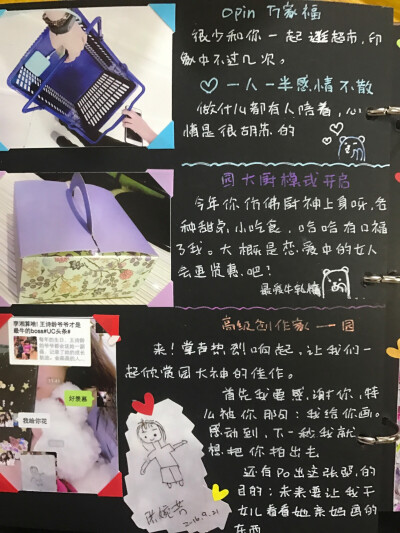 Opin 万家福
很少和你一起逛超市,印
象中不过几次。
♡一人一半感情不散
做什么都有人陪着,心
情是很胡燕的
园大厨模式开启
今年你仿佛厨神上身呀,各
种甜点小吃食,哈哈有口福
了我。大概是恋爱中的女人
会更贤惠吧?
最爱牛轧糖
高级创作家——园
来!掌声热烈响起,让我们一
起欣赏园大神的佳作。
首先我要感谢你,特
么被你那句:我给你画。
感动到,下一秒我就
想把你拍出去。
还有po出这张的
目的:未来要让我干
女儿看看她亲妈画的
东西
李湘算啥!王诗龄爷爷才是
最牛的boss#UC头条#
好羡慕
我给你花
2016.9.21